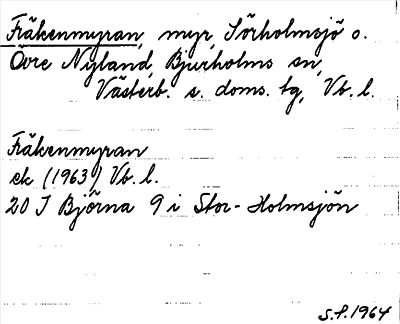 Fräkenmyran, myr, Sörholmsjö o.
Övre Nyland, Bjurholms sn,
Västerb. s. doms. tg, Vb. l.
Fräkenmyran
ek (1963) Vb. l.
20 J Björna 9 i Stor-Holmsjön
S.P. 1964